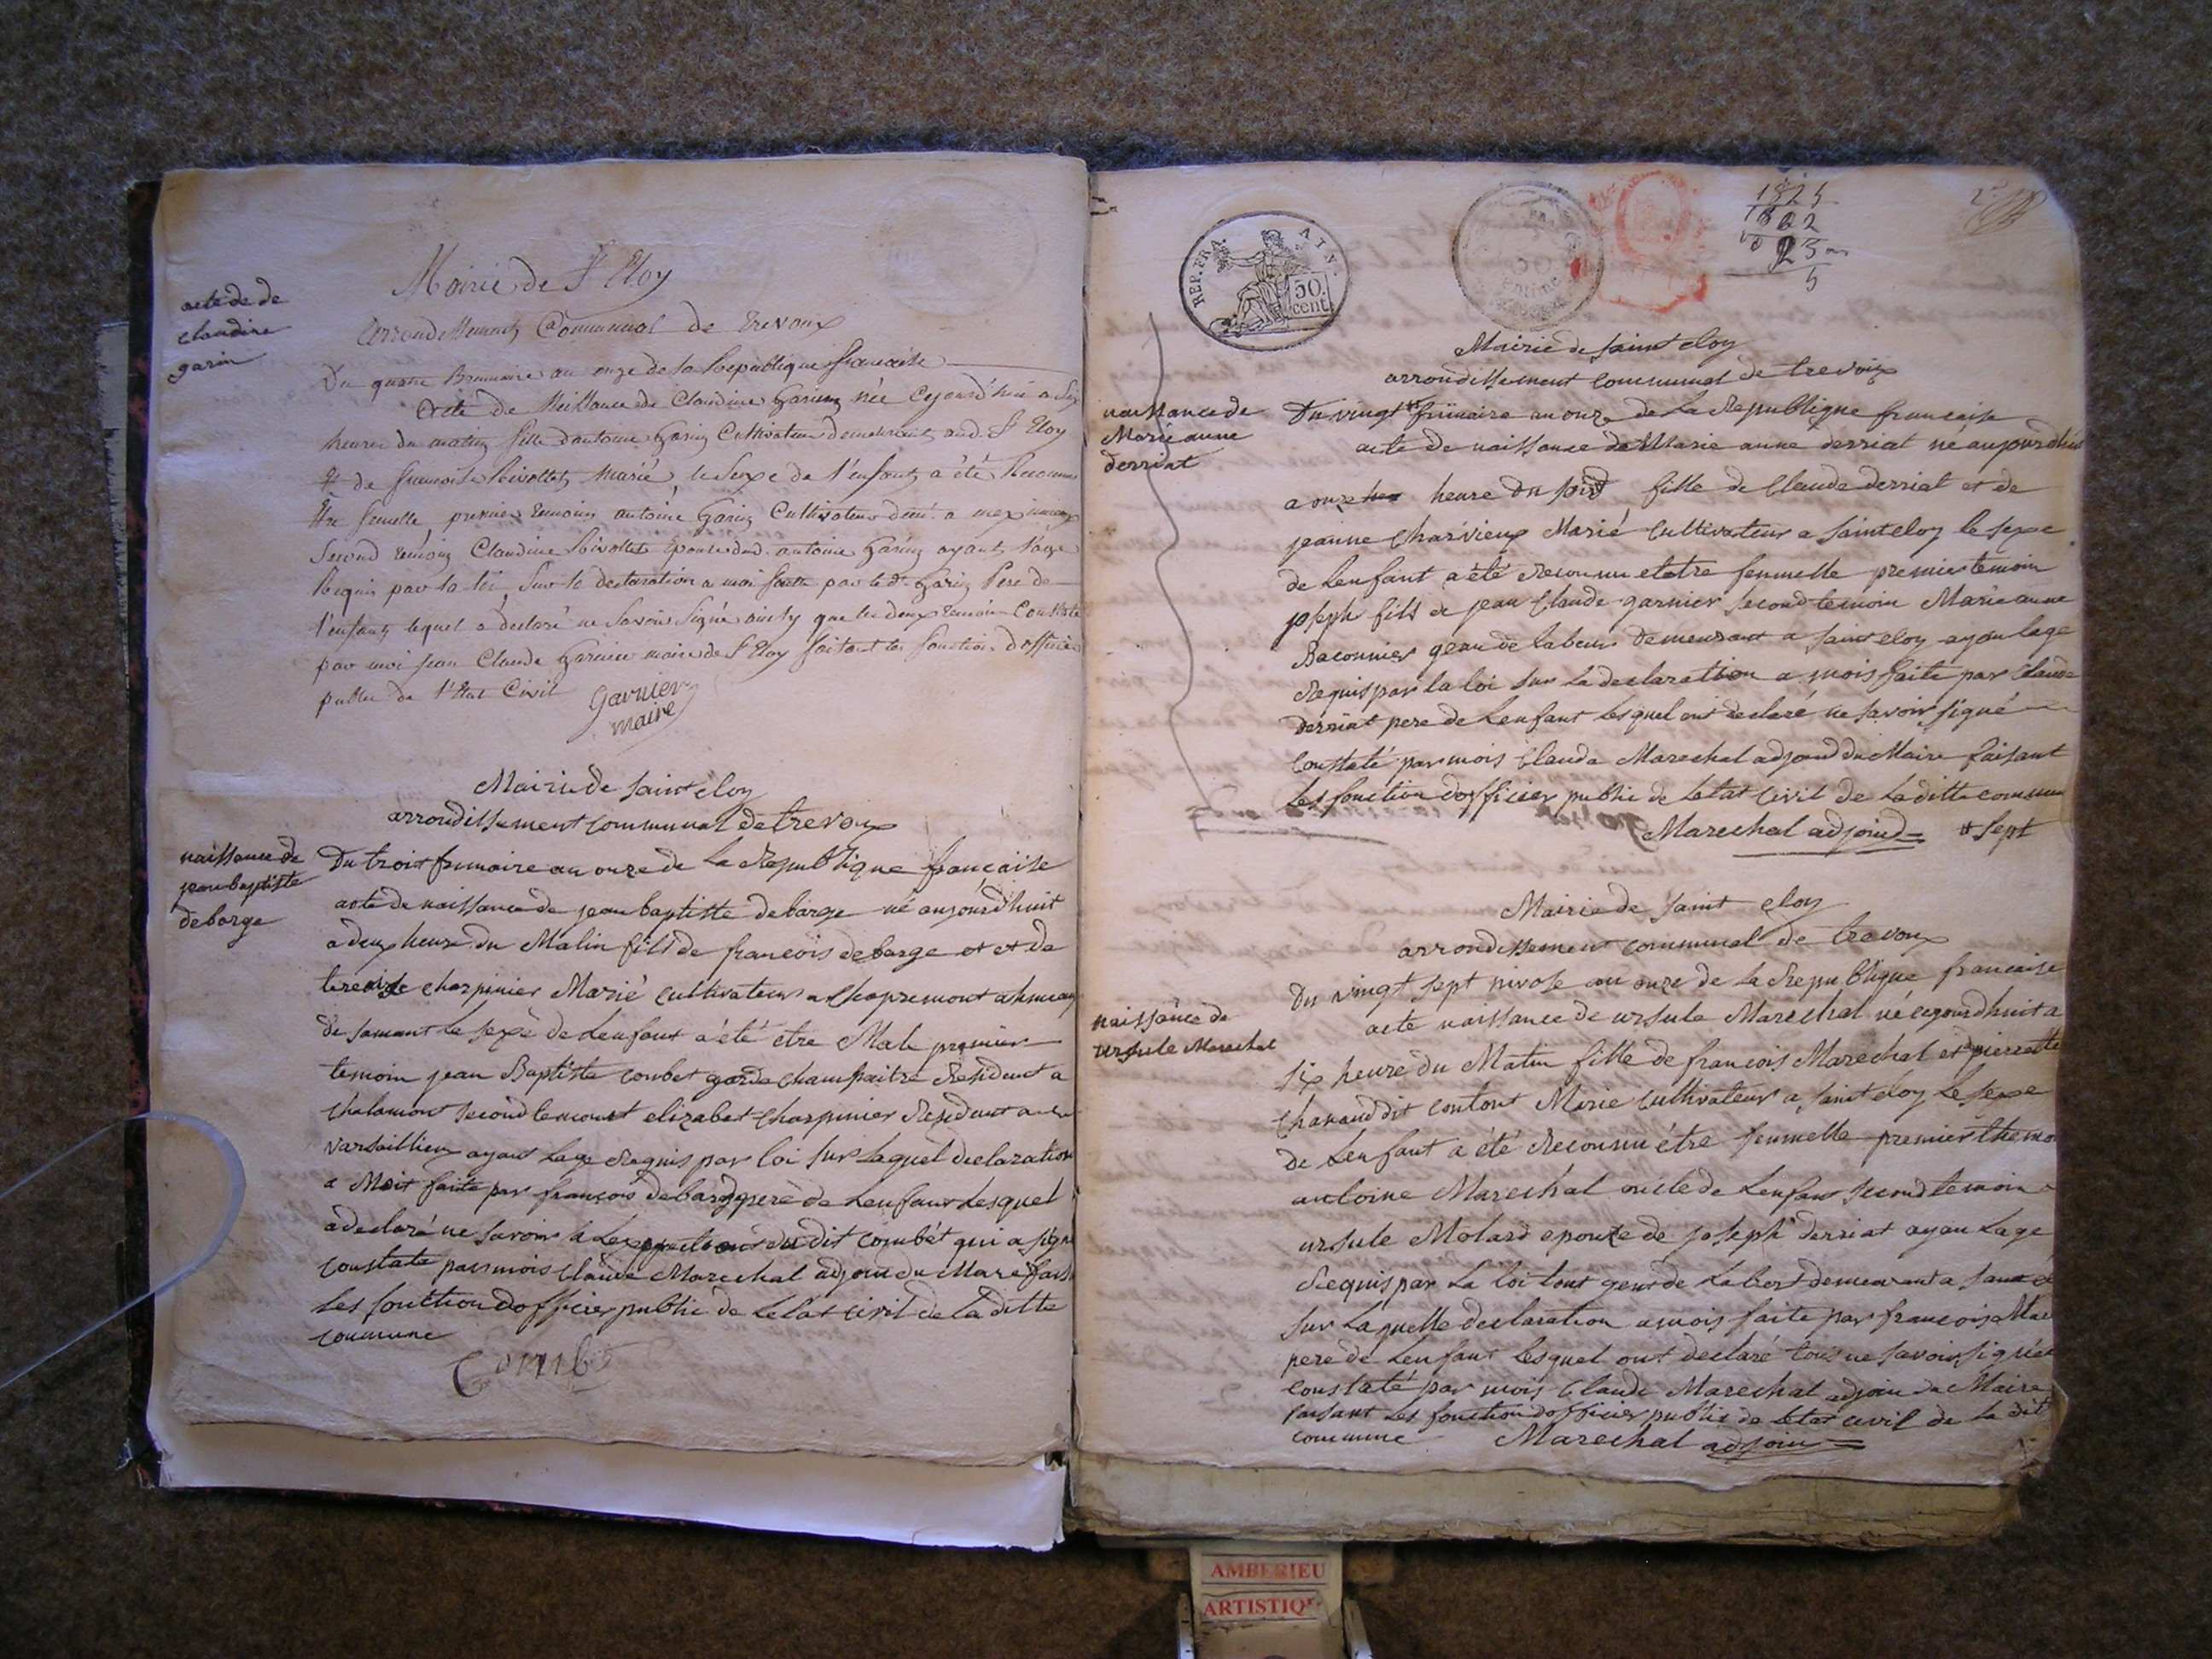 acte de de
claudine
garin
Mairie de St Eloy
Arrondissement Communal de Trevoux
Du quatre Brumaire an onze de la Republique francaise
Acte de Neissance de Claudine Garin née Cejourd'hui a Six
heures du matin fille d'antoine Garin Cultivateur demeurant aud. St Eloy
Et de francoise Rivollet marié, le sexe de l'enfant a été Reconnu
Etre femelle, premier temoin antoine Garin Cultivateur dem.t a meximieux
Second temoin Claudine Rivollet epouse dud. antoine Garin ayant l'age
Requis par la loi, sur la declaration a moi faitte par led. Garin Pere de
l'enfant lequel a declaré ne Savoir Signé ainsy que les deux temoin Constaté
par moi jean Claude Garnier maire de St Eloy faisant les fonction d'officier
public de l'Etat Civil
garnier
maire
Mairie de saint eloy
arrondissement communal de trevoux
naissance de
jean baptiste
debarge
Du trois frimaire an onze de La Republique française
acte de naissance de jean baptiste debarge né aujourd'huit
a deux heure du Matin fils de francois debarge et et de
charpinier Marié cultivateur a Chapremont
le sexe de Lenfant a été etre Male premier
temoin jean Baptiste combet garde champaitre Resident a
Chalamont second elizabet Charpinier Resident a
varsaillieux ayant Lage Requis par loi sur Laquel declaration
a Moit faite par françois debarge pere de Lenfant Lesquel
a declaré ne savoir a dudit combet qui a signe
constate par mois Claude Marechal adjoin du Mare
Les fonction dofficier public de Letat civil de La ditte
commune
REP. FRA.
50
cent.
centime
1825
1802
23
5
Mairie de saint eloy
arrondissement communal de trevoix
naissance de
Marie anne
derriat
Du vingt # frimaire an onze de La Republique francaise
acte de naissance de Marie anne derriat né aujourdhui
a onze heure du soir fille de Claude derriat et de
jeanne Charvieux Marié Cultivateur a saint eloy le sexe
de Lenfant a été Reconnu etetre femmelle premier temoin
joseph fils de jean Claude garnier second temoin Marie anne
Baconnier de labeur demeurant a saint eloy ayan lage
Requis par la loi sur La declaration a mois faite par Claude
derriat pere de Lenfant lesquel ont declaré ne savoir signé
Constaté par mois Claude Marechal adjoind du Maire faisant
Les fonction dofficier public de Letat Civil de La ditte commun
Marechal adjoind # sept
Mairie de saint eloy
arrondissement communal de trevoux
naissance de
ursule Marechal
Du vingt sept nivose an onze de la Republique francaise
acte naissance de ursule Marechal né cejourdhuit a
six heure du Matin fille de francois Marechal et pierrette
Chanand dit contout Marie cultivateur a saint eloy Le sexe
de Lenfant a été Reconnu étre femmelle premier
antoine Marechal oncle de Lenfant second temoin
ursule Molard epouze de joseph derriat ayan Lage
Requis par La loi tout demeurant a
sur Laquelle declaration a mois faite par francois
pere de Lenfant lesquel ont declaré tous ne savoir signée
constaté par mois Claude Marechal adjoin du Maire
faisant Les fonction dofficier public de Letat civil de la dit
commune Marechal adjoin
AMBERIEU
ARTISTIQ